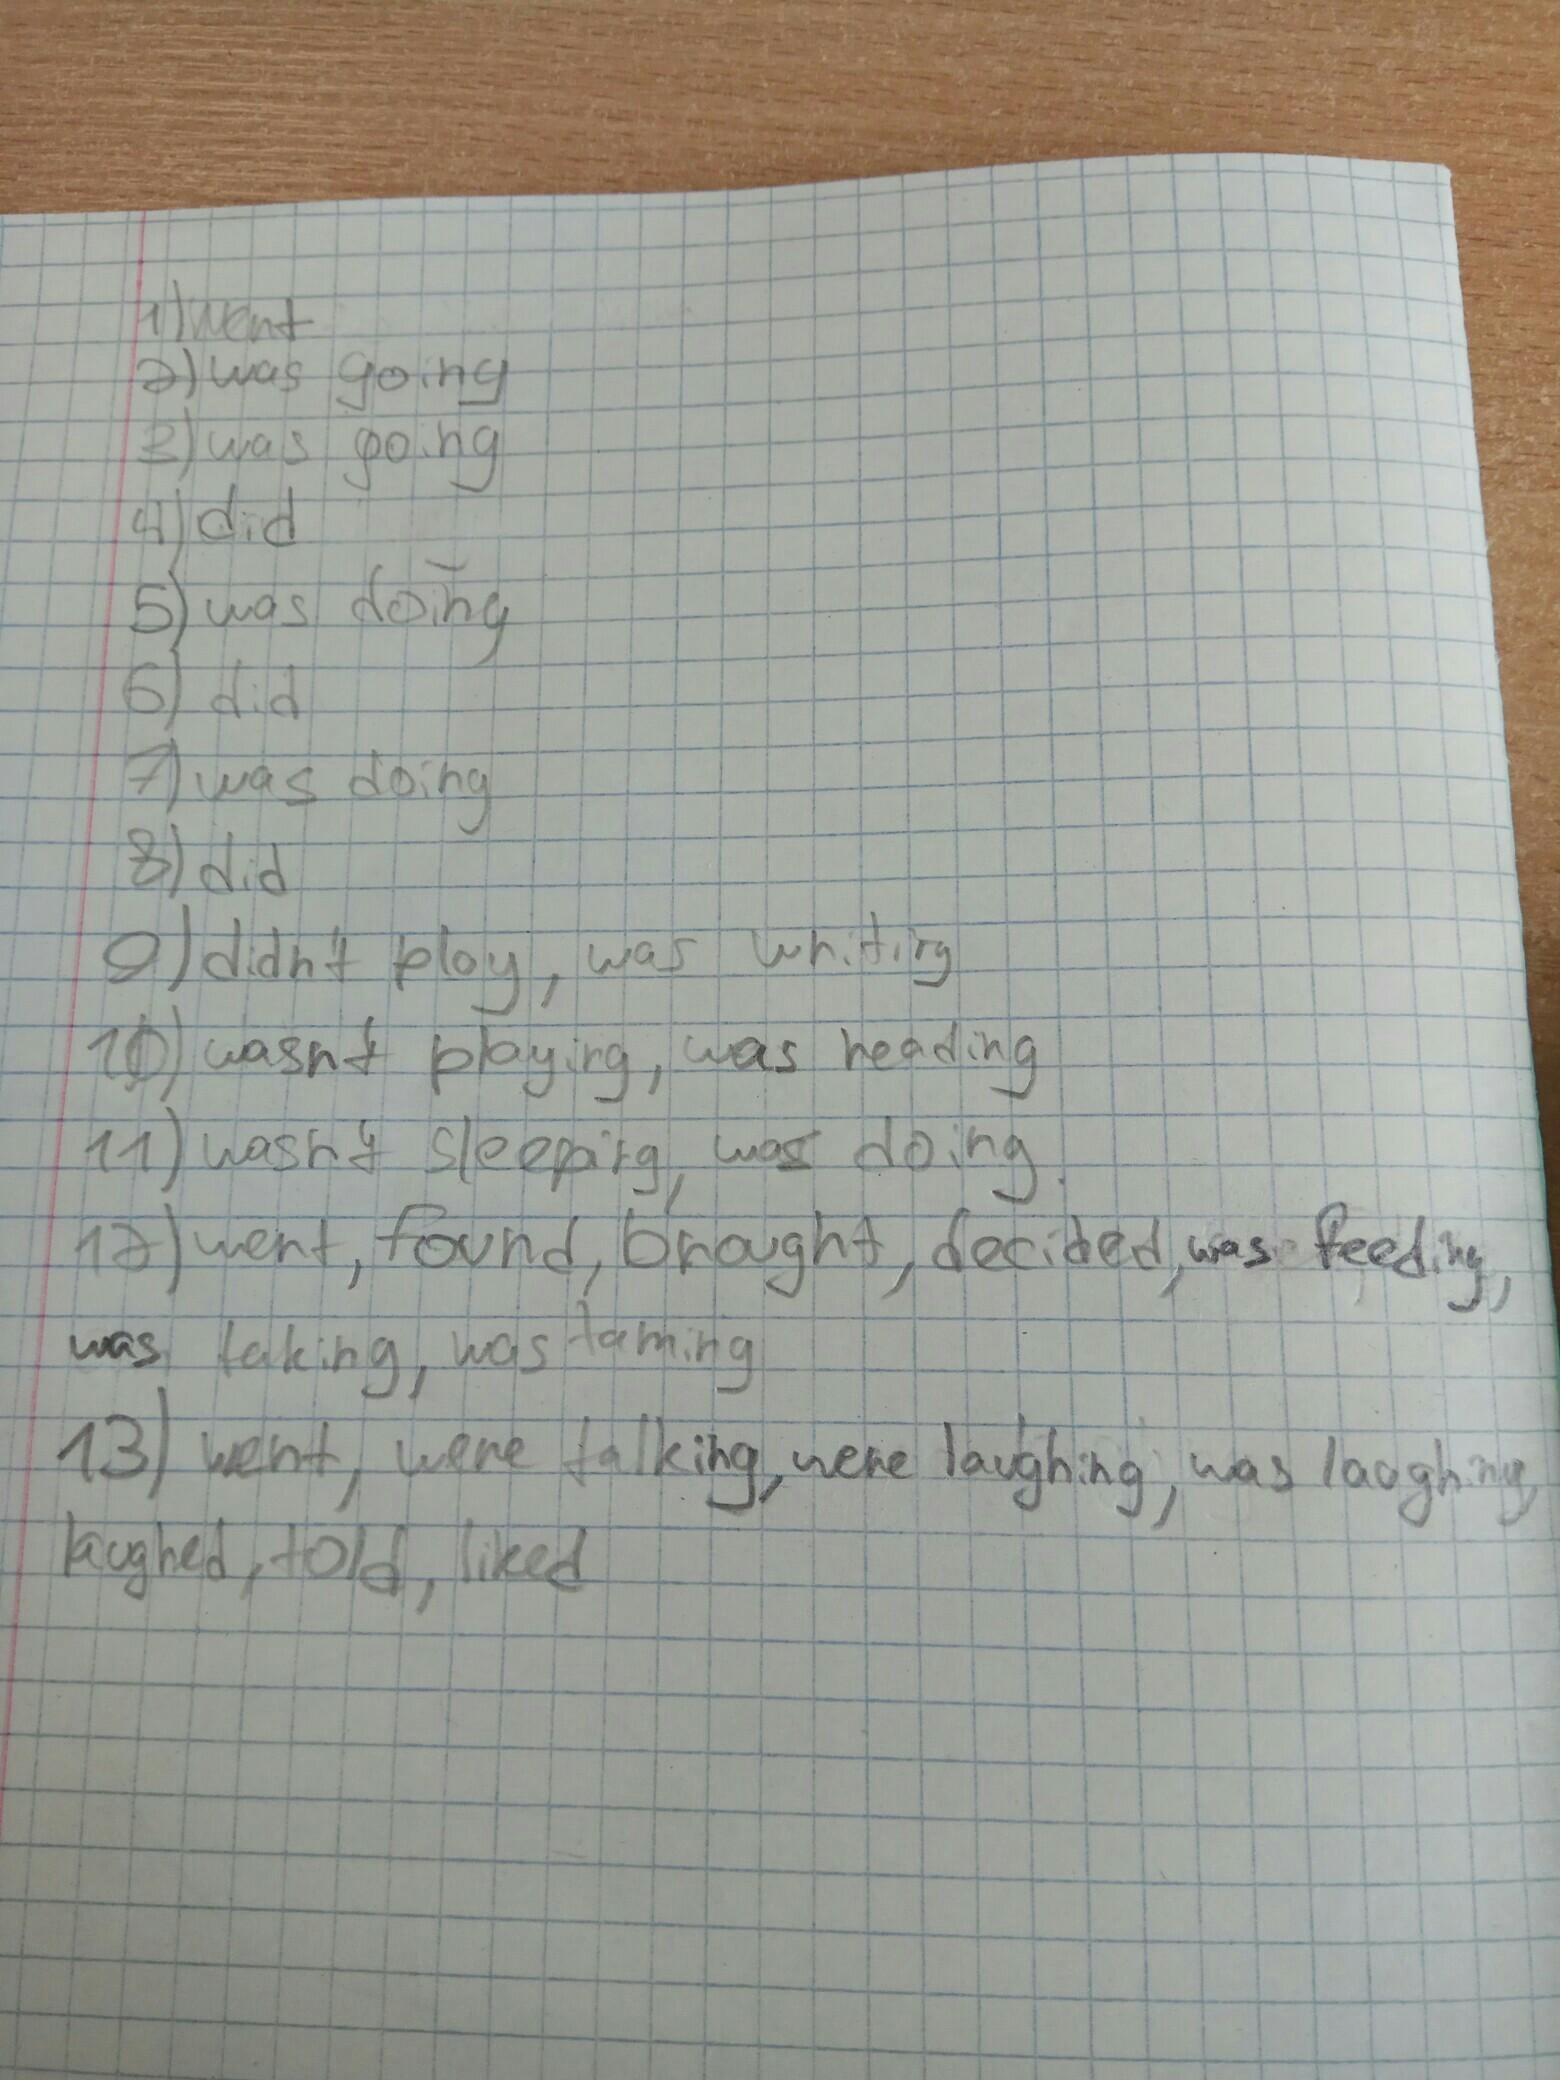 1) went
2) was going
3) was going
4) did
5) was doing
6) did
7) was doing
8) did
9) didn't play, was writing
10) wasn't playing, was reading
11) wasn't sleeping, was doing.
12) went, found, brought, decided, was feeding,
was taking, was taming
13) went, were talking, were laughing, was laughing,
laughed, told, liked